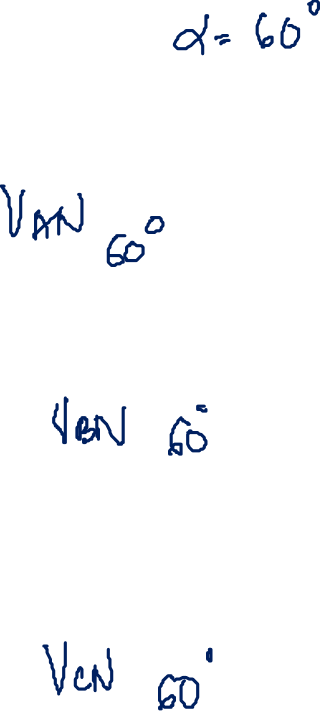 α = 60°
VAN 60°
VBN 60°
VCN 60°